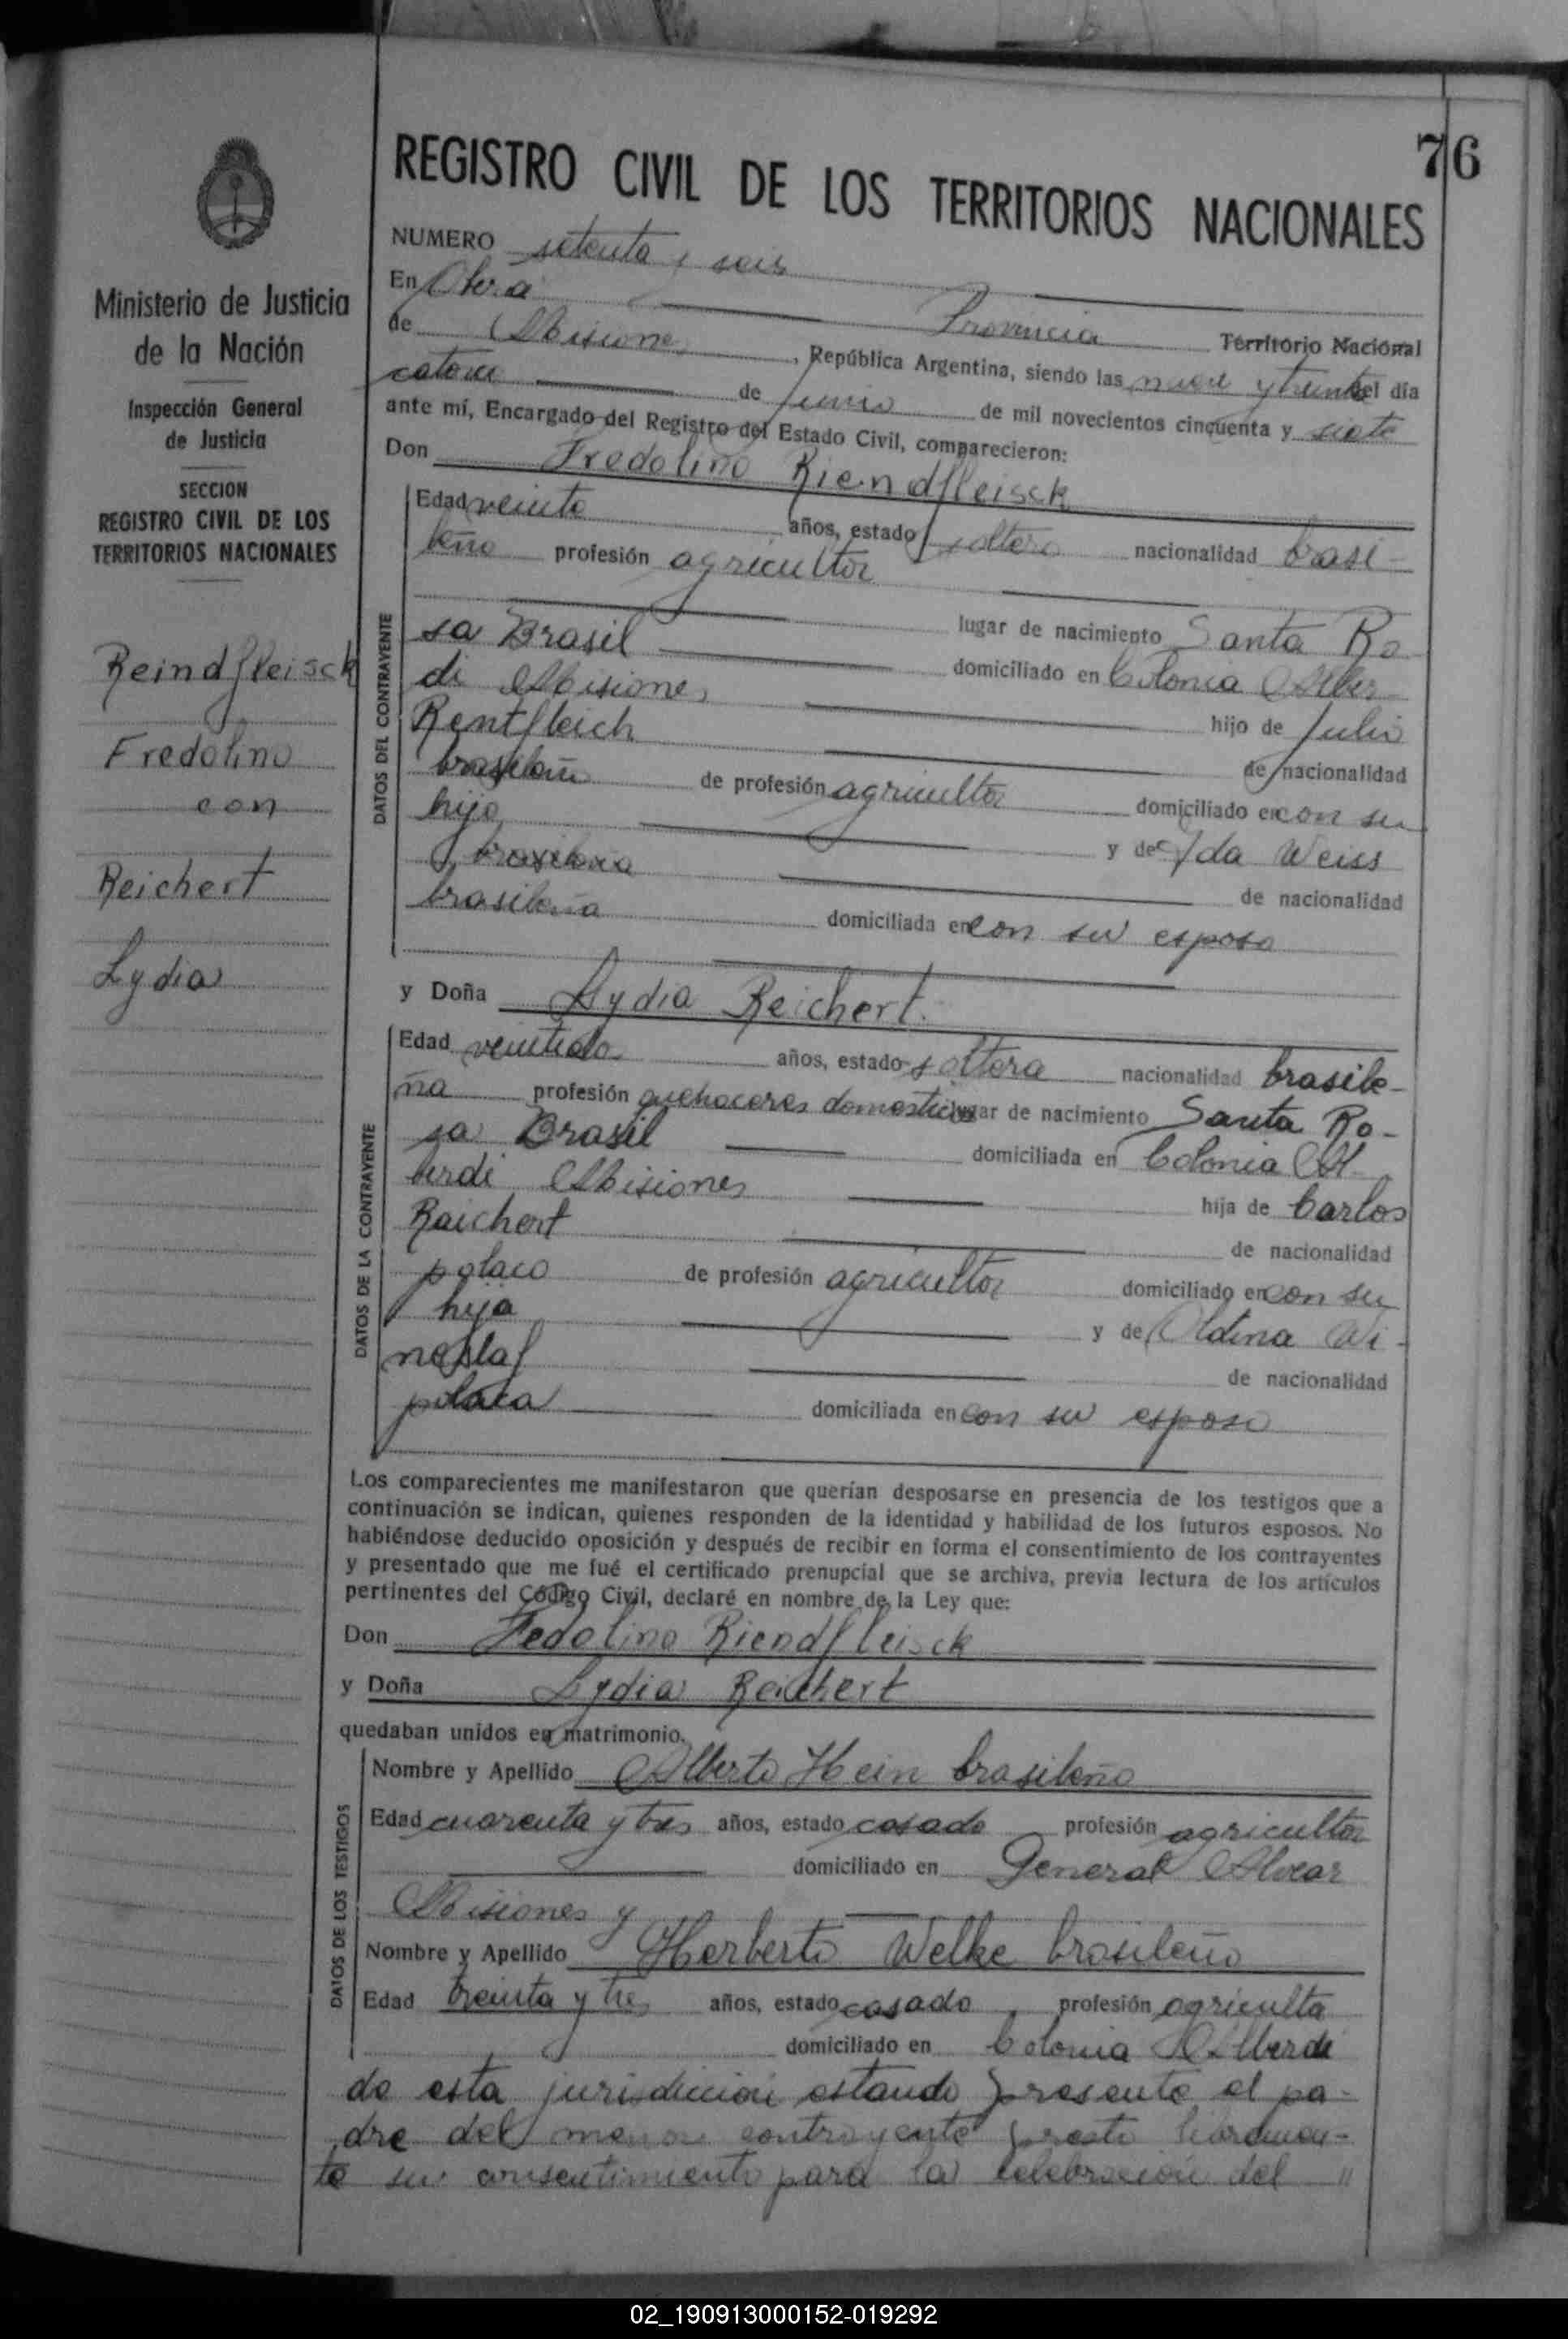 76
REGISTRO CIVIL DE LOS TERRITORIOS NACIONALES
Ministerio de Justicia
de la Nación
Inspección General
de Justicia
SECCION
REGISTRO CIVIL DE LOS
TERRITORIOS NACIONALES
Reindfleisck
Fredolino
con
Reichert
Lydia
NUMERO setenta y seis
En Oberá
Provincia Territorio Nacional
de Misiones, República Argentina, siendo las nueve y treinta del día
catorce de junio de mil novecientos cincuenta y siete
ante mí, Encargado del Registro del Estado Civil, comparecieron:
Don Fredolino Riendfleisck
DATOS DEL CONTRAYENTE
Edad veinte años, estado soltero nacionalidad brasi-
leño profesión agricultor
lugar de nacimiento Santa Ro
sa Brasil domiciliado en Colonia Alber
di Misiones hijo de Julio
Rentfleich de nacionalidad
brasileño de profesión agricultor domiciliado en con su
hijo y de Ida Weiss
brasilera de nacionalidad
brasileña domiciliada en con su esposo
y Doña Lydia Reichert.
DATOS DE LA CONTRAYENTE
Edad veintidos años, estado soltera nacionalidad brasile-
ña profesión quehaceres domesticos lugar de nacimiento Santa Ro-
sa Brasil domiciliada en Colonia Al
berdi Misiones hija de Carlos
Raichert de nacionalidad
polaco de profesión agricultor domiciliado en con su
hija y de Oldina Wi-
de nacionalidad
polaca domiciliada en con su esposo
Los comparecientes me manifestaron que querían desposarse en presencia de los testigos que a
continuación se indican, quienes responden de la identidad y habilidad de los futuros esposos. No
habiéndose deducido oposición y después de recibir en forma el consentimiento de los contrayentes
y presentado que me fué el certificado prenupcial que se archiva, previa lectura de los artículos
pertinentes del Código Civil, declaré en nombre de la Ley que:
Don Fedolino Riendfleisck
y Doña Lydia Reichert
quedaban unidos en matrimonio.
DATOS DE LOS TESTIGOS
Nombre y Apellido Alberto Hein brasileño
Edad cuarenta y tres años, estado casado profesión agricultor
domiciliado en General Alvear
Misiones y
Nombre y Apellido Herberto Welke brasileño
Edad treinta y tres años, estado casado profesión agriculto
domiciliado en Colonia Alberdi
de esta jurisdiccion estando presente el pa-
dre del menor contrayente presto libremen-
te su consentimiento para la celebracion del "
02_190913000152-019292